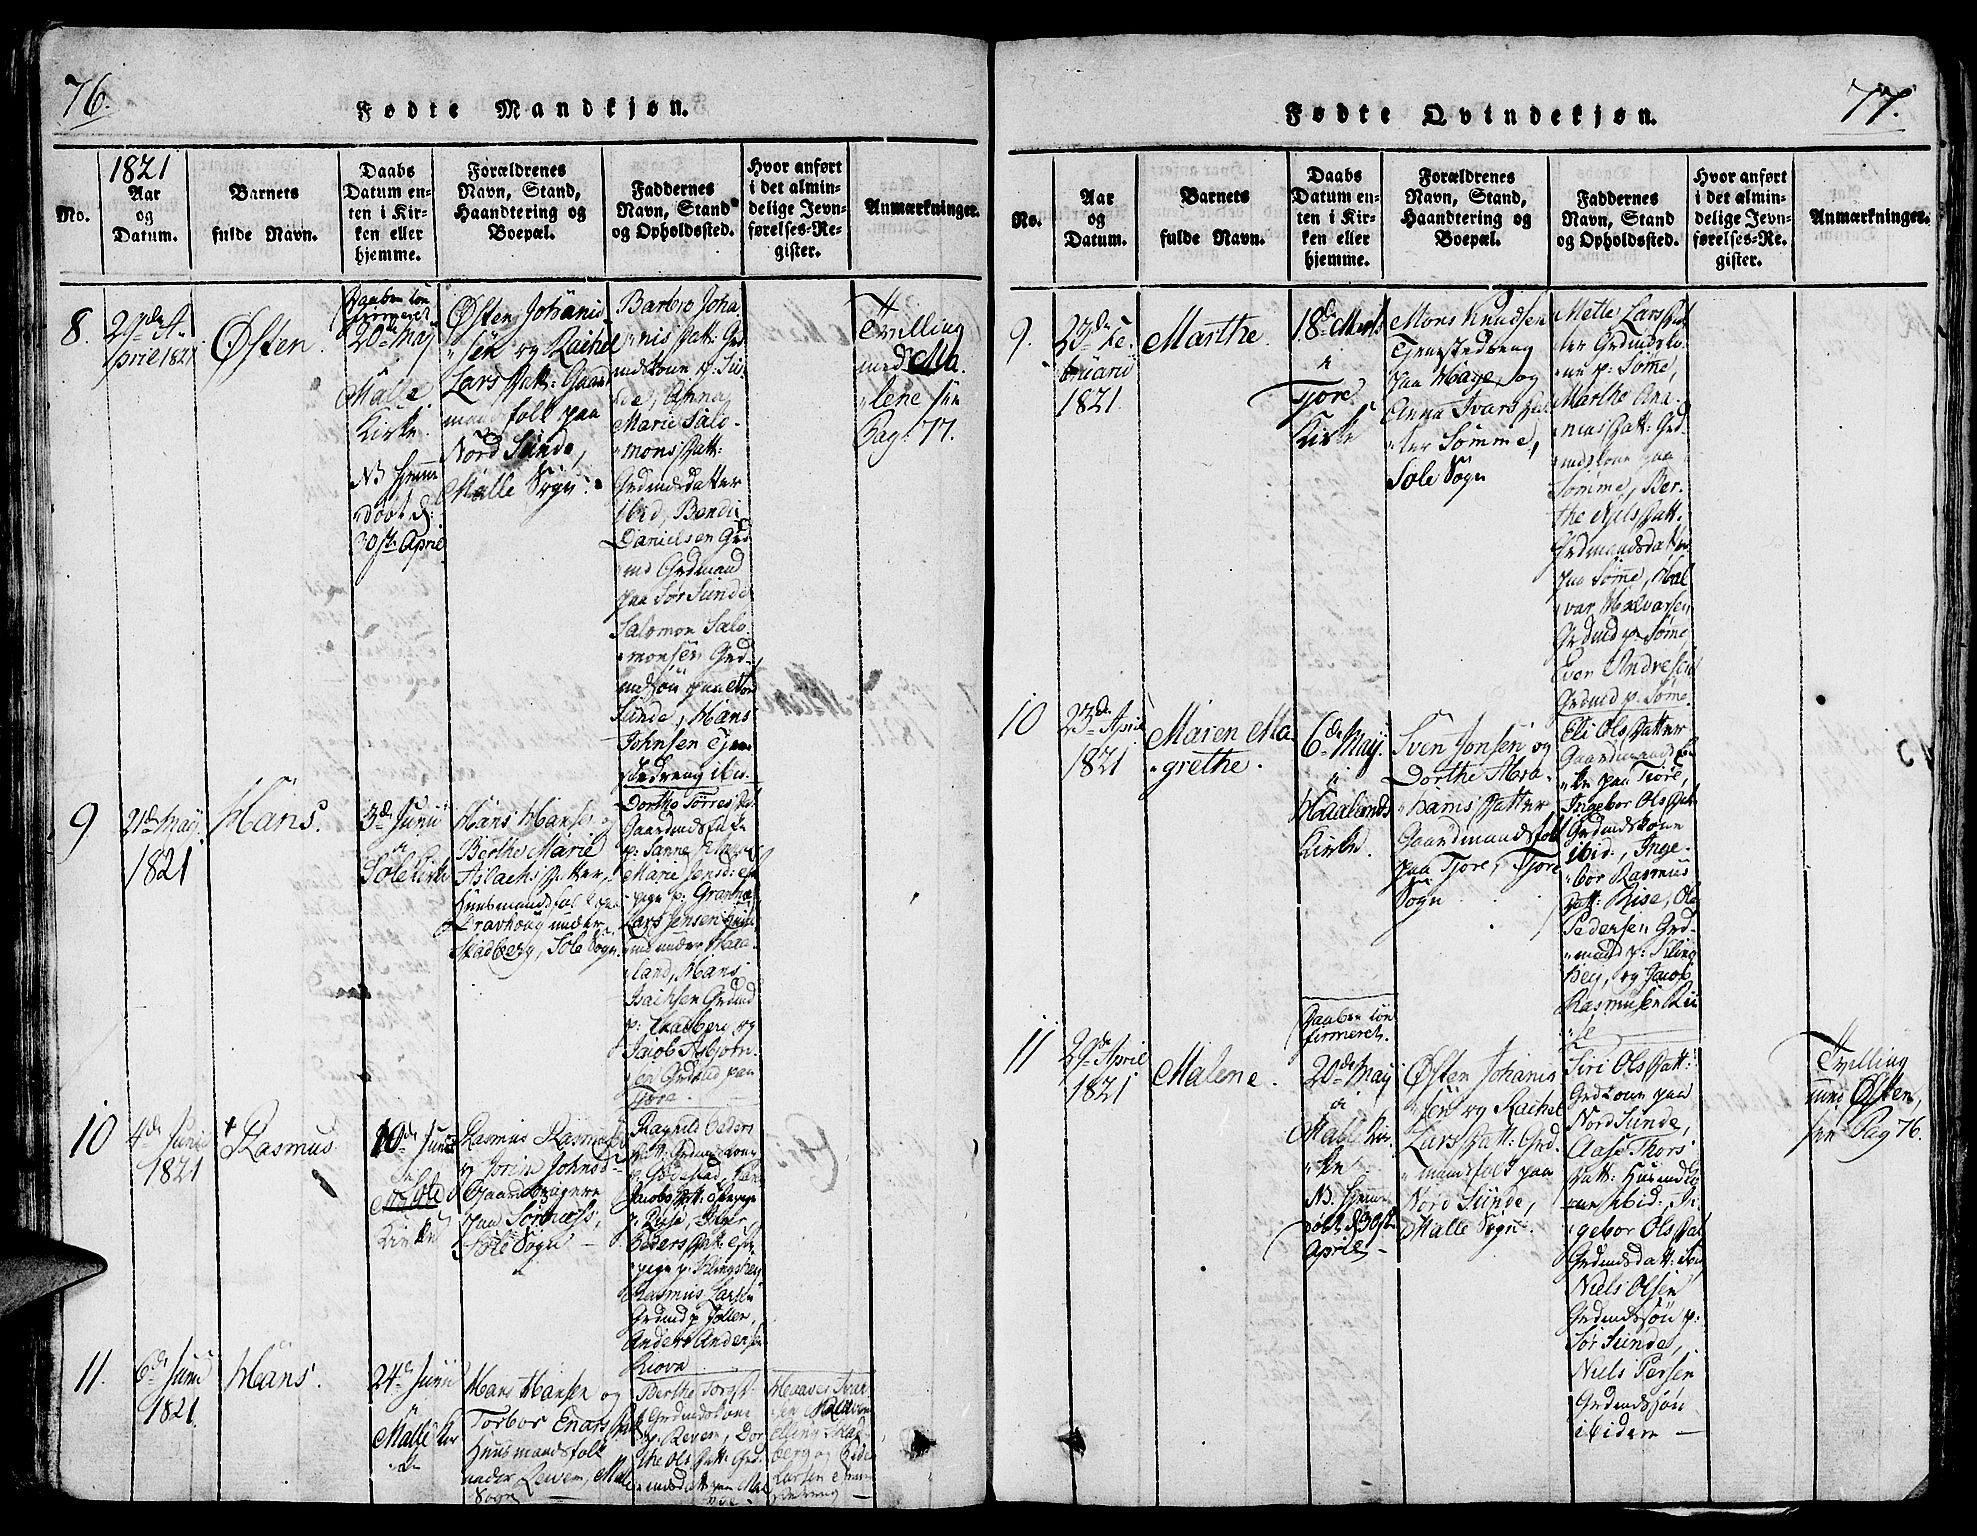 76.
Fødte Mandkjøn.
No.
1821
Aar
og
Datum.
Barnets
fulde Navn.
Daabs
Datum en-
ten i Kir-
ken eller
hjemme.
Forældrenes
Navn, Stand,
Haandtering og
Boepæl.
Faddernes
Navn, Stand
og Opholdssted.
Hvor anført
i det almin-
delige Jevn-
førelses-Re-
gister.
Anmærkninger.
8.
29de A-
pril 1821
Østen.
Daaben con
firmeret
20de Maij
i
Malle
Kirke.
NB hjemme
døbt d:
30te April
Østen Johanis
sen og Rachel
Lars Datt: Gaard
mandsfolk paa
Nord Sunde,
Malle Sogn.
Barbro Joha
nis Datt: Grd
mdskone p. Sun
de, Anna
Marie Salo-
mons Datt:
Grdmdsdatter
ibid, Bendix
Danielsen Grd
md Grdmand
paa Sør Sunde
Salomon Salo-
monsen Grd-
mdsøn paa Nord
Sunde, Hans
Johnsen Tjene
stedreng ibid.
Tvilling
med Ma-
lene see
Pag: 77.
9
21de Maij
1821
Hans.
3de Junii
i
Sole Kirke
Hans Hansen og
Berthe Marie
Aslachs Datter,
Huusmandsfolk paa
Kravhoug under
Stadberg, Sole Sogn.
Dorthe Torres Dat
Gaardmdsfolk
p: Sanne
Marie Jensd:
pige p: Grannes
Lars Jensen
md under Haa-
land, Hans
Isachsen Grdmd
p: Stadberg og
Jacob Asbjørn-
sen Grdmd paa
Tjore.
10
4de Junii
1821
+ Rasmus
10de Junii
i
Sole
Kirke
Rasmus Rasmussen
og Jorine Johnsd:
Gaardbrugere
paa Sørnæss,
Sole Sogn
Ragnild Peders
Datt: Grdmdskone
p Goddestad,
Jacobs Datt: Pige
p: Riise,
Peders Datt:
pige p: Klingsheij
Rasmus Larsen
Grdmd p Joller,
Anders Andersen
11.
6de Junii
1821.
Hans.
24de Junii
i
Malle Kir
ke
Hans Hansen og
Torbor Enars Dat
Huusmandsfolk
under Reven, Malle
Sogn
Berthe Torgs
Grdmdskone
p. Reven, Dor
the Ols Datt: Grd
mdsdatt paa Mal
de
Haaver Iver-
sen
Elling Stad-
berg og Peder
Larsen Tjene
stedreng
77.
Fødte Qvindekjøn.
No.
Aar
og
Datum.
Barnets
fulde Navn.
Daabs
Datum en-
ten i Kir-
ken eller
hjemme.
Forældrenes
Navn, Stand,
Haandtering og
Boepæl.
Faddernes
Navn, Stand
og Opholdssted.
Hvor anført
i det almin-
delige Jevn-
førelses-Re-
gister.
Anmærkninger.
9.
23de Fe-
bruarii
1821.
Marthe.
18de Marts
i
Tjore
Kirke
Mons Knudsen
Tjenestedreng
paa Hage, og
Anna Ivars Dat
ter Sømme,
Sole Sogn
Mette Lars Dat
ter Grdmdsko-
ne p: Sømme,
Marthe Ana-
nias Datt: Grd-
mdskone paa
Sømme, Ber-
the Niels Datt:
Grdmandsdatter
paa Sømme, Hal
var Halvarsen
Grdmd p. Sømme,
Even Andresen
Grdmd p. Sømme.
10
23de April
1821
Maren Ma-
grethe.
6de Maij
i
Haalands
Kirke.
Sven Jonsen og
Dorthe Abra-
hams Datter
Gaardmandsfolk
paa Tjore, Tjore
Sogn
Eli Ols Datter
Gaardmandsk
ke paa Tjore,
Ingebor Ols Datt
Grdmdskone
ibid., Inge-
bor Rasmus
Datt: Riise, Ole
Pedersen Grd-
mand p: Kling
heij, og Jacob
Rasmussen Rii
se
11
29de April
1821
Malene.
Daaben con
firmeret.
20de Maij
i
Malle Kir-
ke
NB. hjemme
døbt d 30te
April
Østen Johanis
sen og Rachel
Lars Datt: Grd-
mandsfolk paa
Nord Sunde,
Malle Sogn.
Siri Ols Datt:
Grdkone paa
Nord Sunde,
Aase Thors
Datt: Husmdsko
ne ibid: In-
gebor Ols Dat
Grdmdsdatt: ibid
Niels Olsen
Grdmdssøn p:
Sør Sunde,
Niels Persen
Grdmdssøn
ibidem
Tvilling
med Østen,
see Pag 76.